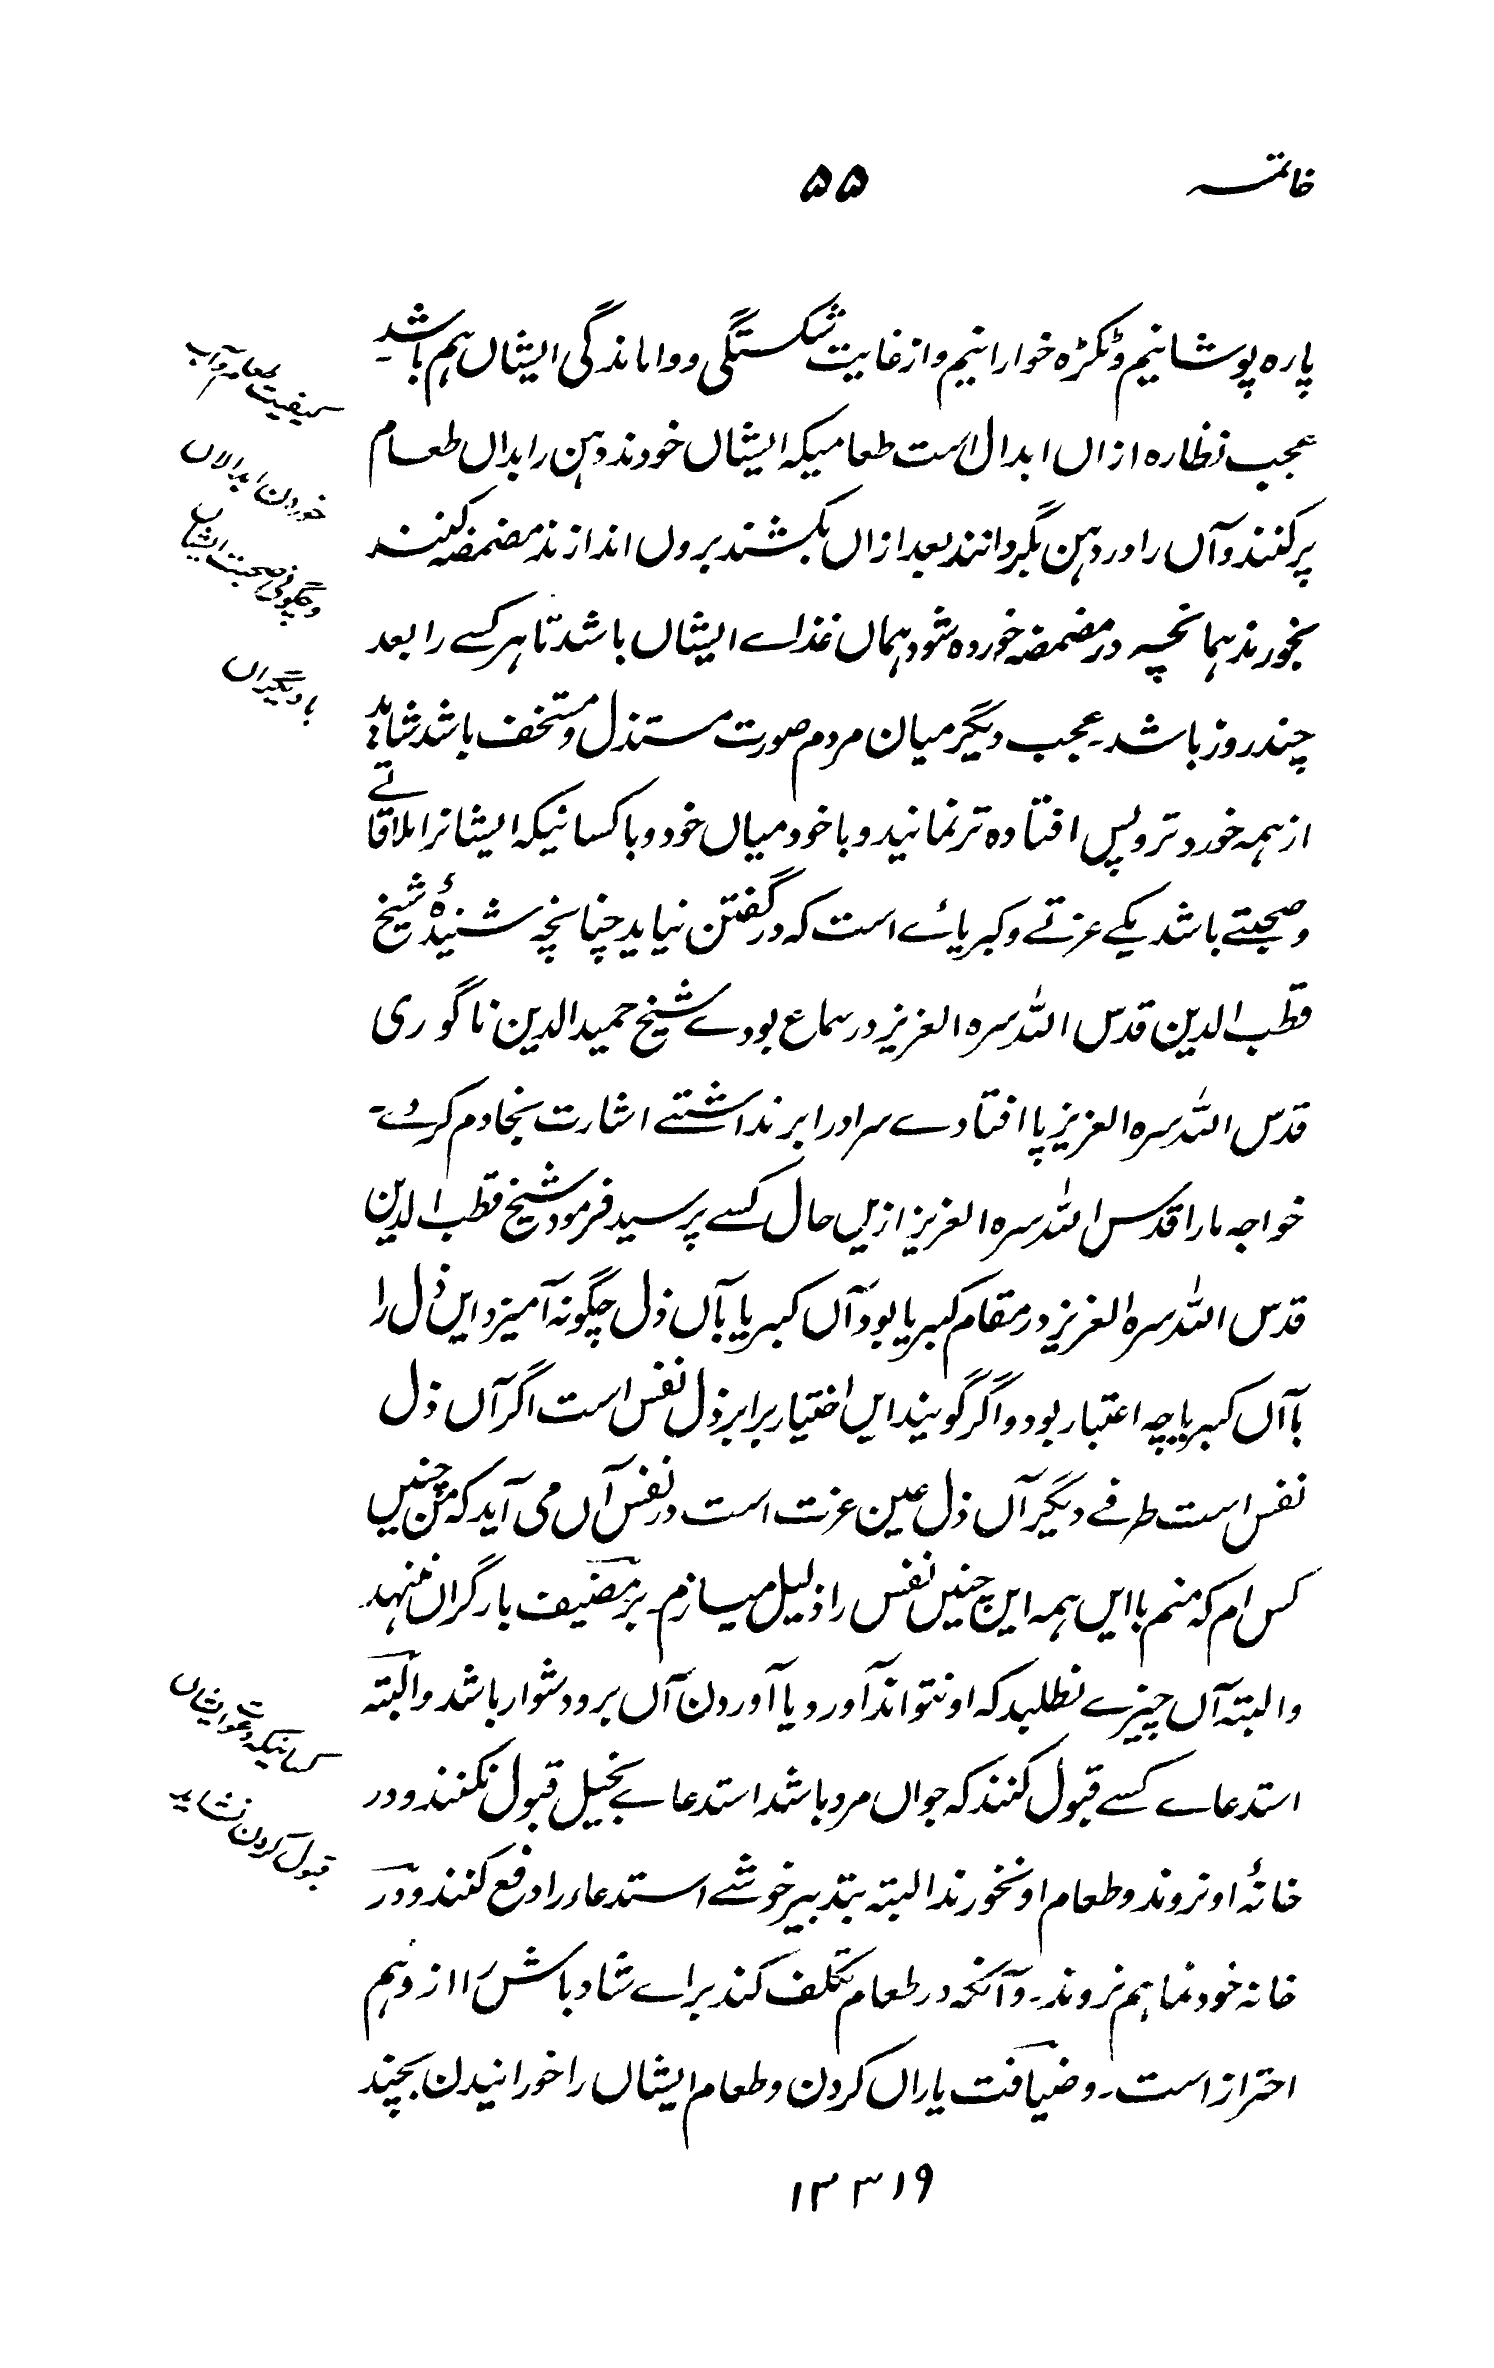 خاتمہ
۵۵
پارہ پوشانیم و ٹکڑہ خوارانیم و از غایت شکستگی و واماندگی ایشاں ہم باشد۔
عجب نظارہ ازاں ابدال است طعامیکہ ایشاں خورند دہن را بداں طعام
پرکنند و آں را در دہن بگردانند بعد ازاں بکشند بروں اندازند مضمضہ کنند
بخورند ہمانچہ در مضمضہ خوردہ شود ہماں غذاے ایشاں باشد تا ہر کسے را بعد
چند روز باشد۔ عجب دیگر میان مردم صورت مستذل و مستخف باشد شاید
از ہمہ خورد تر و پس افتادہ تر نمانید و با خود میاں خود و با کسانیکہ ایشانرا ملاقاتے
و صحبتے باشد یکے عزتے و کبریائے است کہ در گفتن نیاید چنانچہ شنیدۂ شیخ
قطب الدین قدس اللہ سرہ العزیز در سماع بودے شیخ حمید الدین ناگوری
قدس اللہ سرہ العزیز پا افتادے سر او را بر نداشتے اشارت بخادم کردے۔
خواجہ ما را قدس اللہ سرہ العزیز ازیں حال کسے پرسید فرمود شیخ قطب الدین
قدس اللہ سرہ العزیز در مقام کبریا بود آں کبریا بآں ذل چگونہ آمیزد ایں ذل را
باآں کبریا چہ اعتبار بود و اگر گویند ایں اختیار برابر ذل نفس است اگر آں ذل
نفس است طرفے دیگر آں ذل عین عزت است در نفس آں می آید کہ من چنیں
کس ام کہ منم با ایں ہمہ ایں چنیں نفس را ذلیل میسازم۔ بر مضیف بار گراں ننہد
و البتہ آں چیزے نطلبد کہ او نتواند آورد یا آوردن آں برو دشوار باشد و البتہ
استدعاے کسے قبول کنند کہ جواں مرد باشد استدعاے بخیل قبول نکنند و در
خانۂ او نروند و طعام او نخورند البتہ بتدبیر خوشے استدعاء را دفع کنند و در
خانہ خود نما ہم نروند۔ و آنکہ در طعام تکلف کند براے شاد باش را از و ہم
احتراز است۔ و ضیافت یاراں کردن و طعام ایشاں را خورانیدن بچند
کیفیت طعام و آب
خوردن ابدالاں
و چگونی صحبت ایشاں
با دیگراں
کسانیکہ دعوت ایشاں
قبول کردن نشاید
۱۳۳۱۹